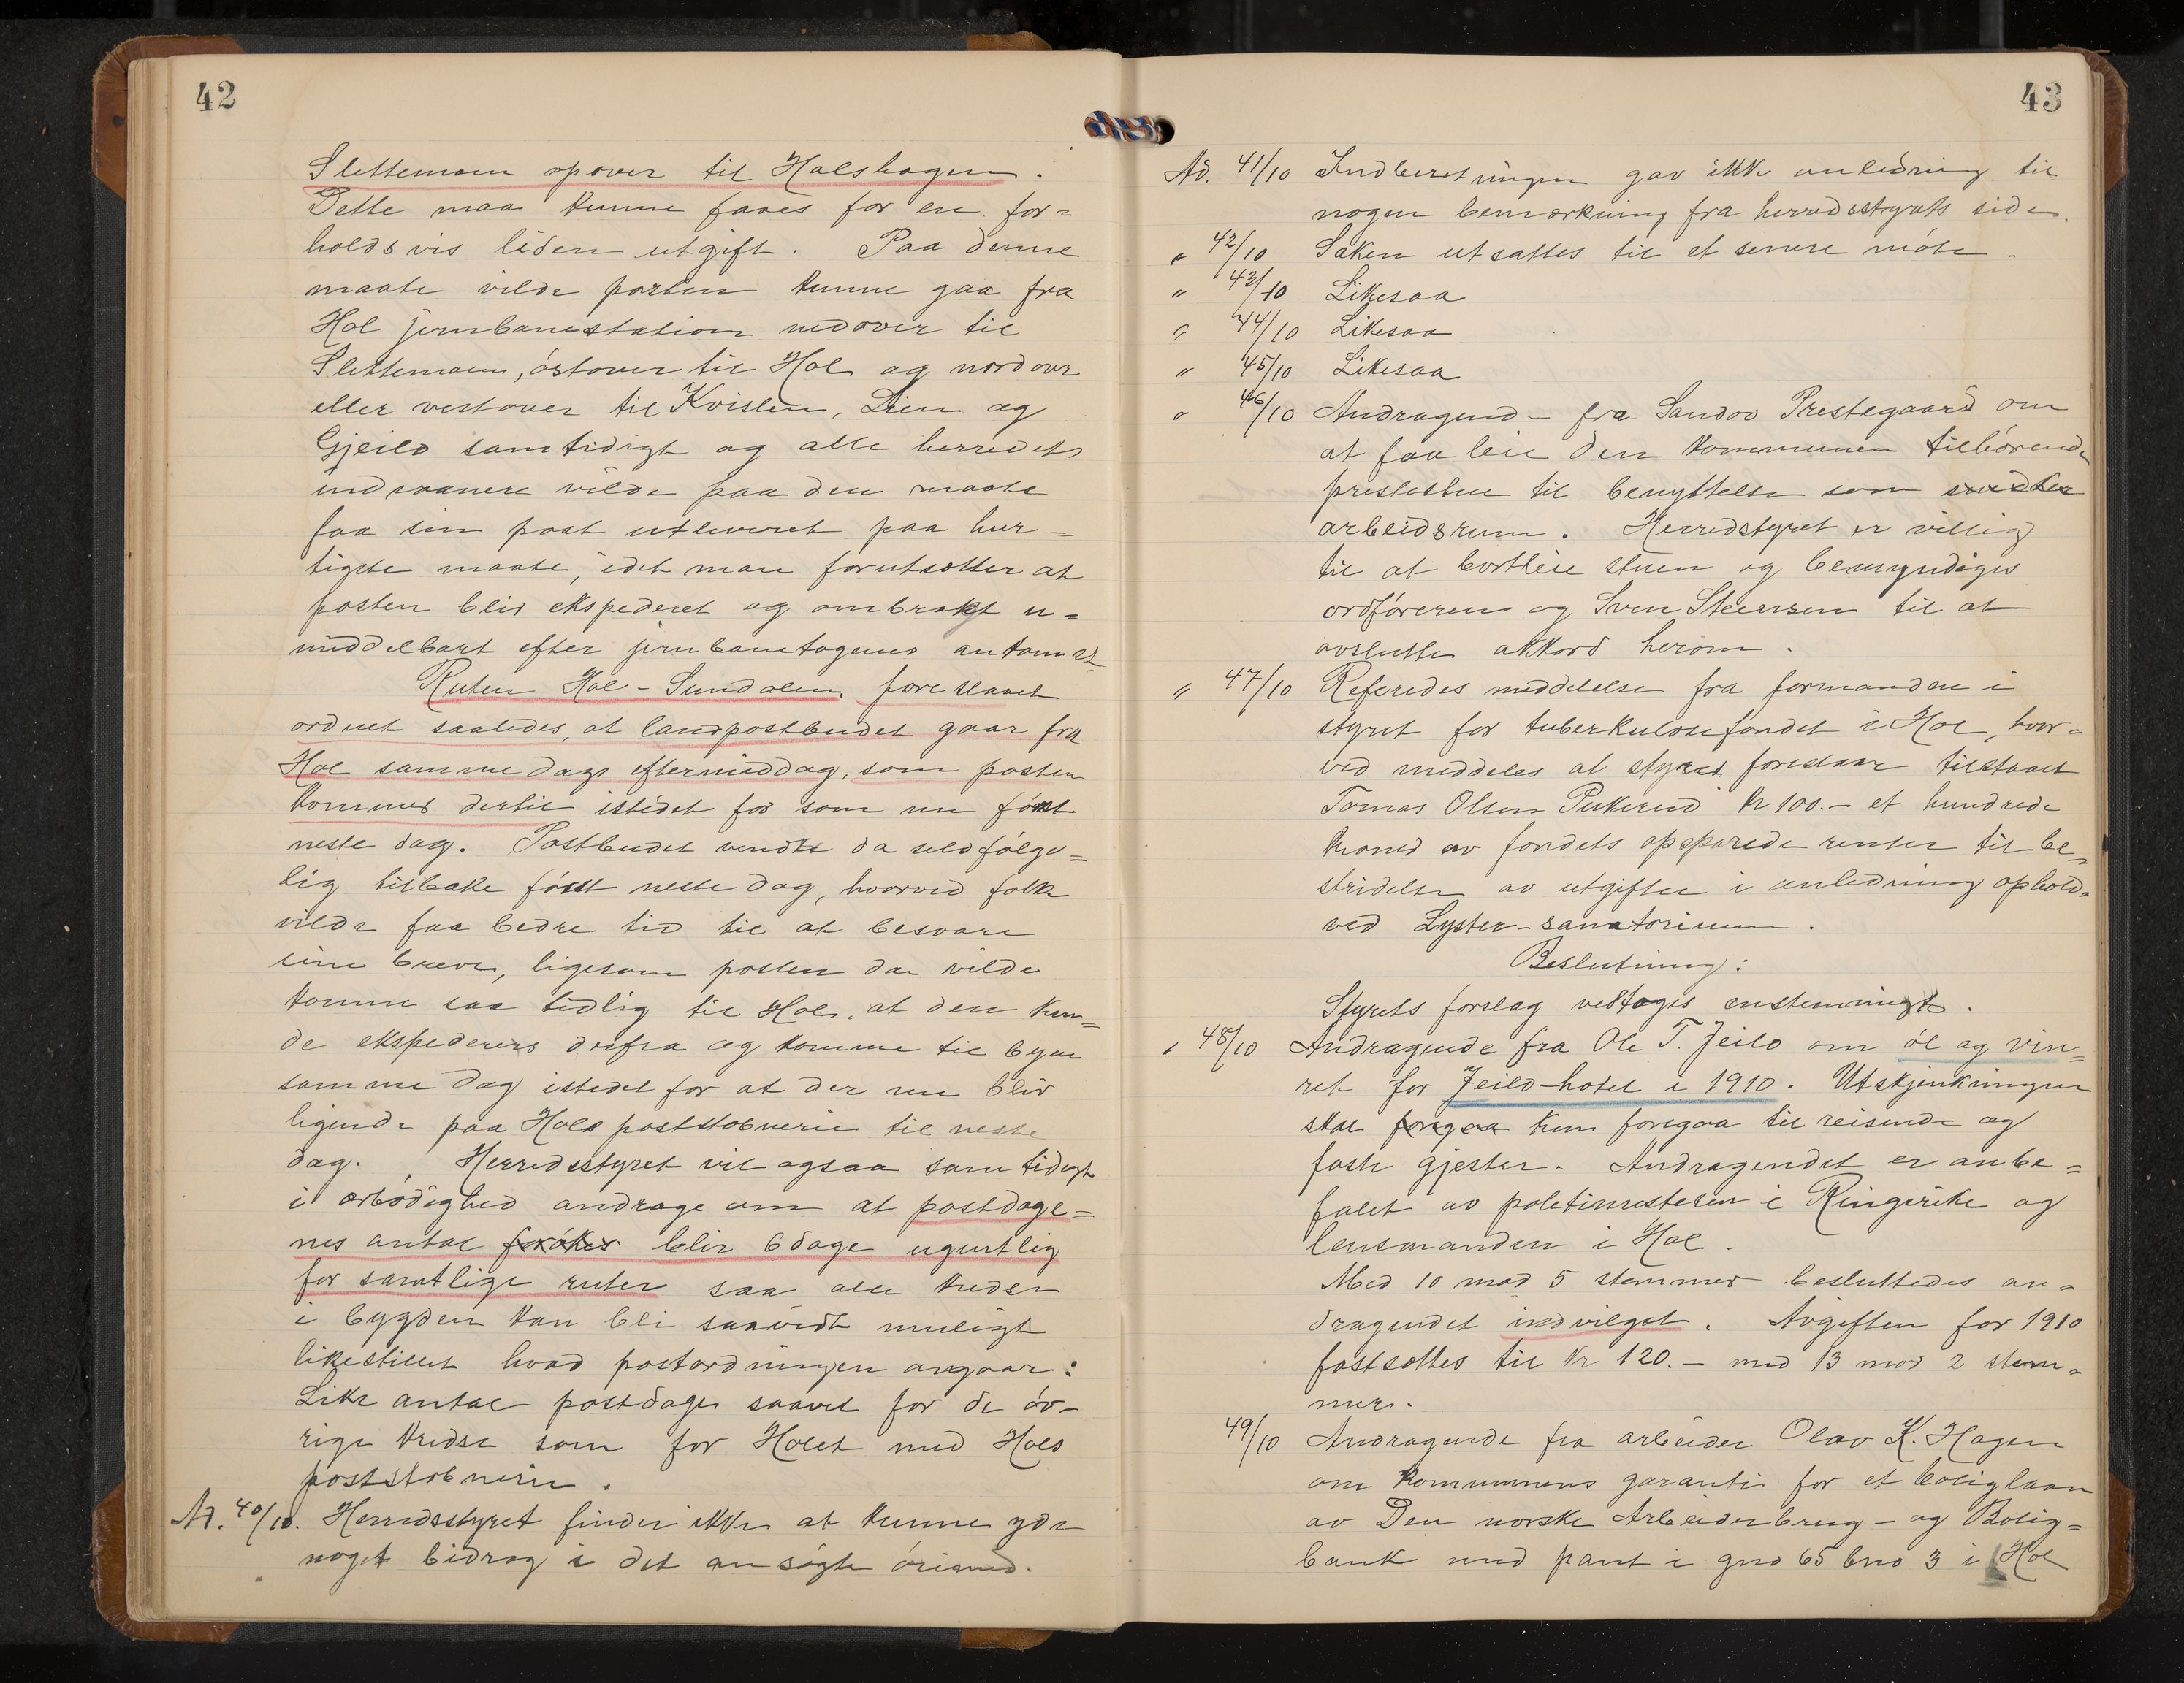 42
Slettemoen opover til Halshagen.
Dette maa kunne faaes for en for=
holdsvis liden utgift. Paa denne
maate vilde posten kunne gaa fra
Hol jernbanestation nedover til
Slettemoen, óstover til Hol og nordover
eller vestover til Kvislen, Lien og
Gjeilo samtidigt og alle herredets
indvaanere vilde paa den maate
faa sin post utleveret paa hur=
tigste maate, idet man forutsætter at
posten blir ekspederet og ombrakt u=
middelbart efter jernbanetogenes ankomst
Ruten Hol - Sundalen foreslaaes
ordnet saaledes, at landpostbudet gaar fra
Hol samme dags eftermiddag, som posten
kommer dertil istedet for som nu fórst
neste dag. Postbudet vendte da selvfólge=
lig tilbake fórst neste dag, hvorved folk
vilde faa bedre tid til at besvare
sine breve, ligesom posten da vilde
komme saa tidlig til Hol, at den kun=
de ekspederes derfra og komme til byen
samme dag istedet for at der nu blir
liggende paa Hols poststobneri til neste
dag. Herredsstyret vil ogsaa samtidigt
i ærbódighed andrage om at postdage=
nes antal blir 6 dage ugentlig
for samtlige ruter saa alle kredser
i bygden kan bli saavidt muligt
likestillet hvad postordningen angaar:
Like antal postdage saavel for de óv-
rige kredse som for Holet med Hols
poststobneri.
Ad. 40/10. Herredsstyret finder ikke at kunne yde
noget bidrag i det ansógte óiemed.
43
Ad. 41/10 Indberetningen gav ikke anledning til
nogen bemærkning fra herredsstyrets side.
" 42/10 Saken utsattes til et senere móte.
" 43/10 Likesaa
" 44/10 Likesaa
" 45/10 Likesaa
" 46/10 Andragende fra Sandov Prestegaard om
at faa leie den kommunen tilhórende
prestestue til benyttelse som
arbeidsrum. Herredstyret er villig
til at bortleie stuen og bemyndiges
ordfóreren og Sven Steensen til at
avslutte akkord herom.
" 47/10 Referedes meddelelse fra formanden i
styret for tuberkulosefondet i Hol, hvor=
ved meddeles at styret foreslaar tilstaaet
Tomas Olsen Pukerud kr 100.- et hundrede
kroner av fondets opsparede renter til be=
stridelse av utgifter i anledning ophold=
ved Lyster-sanatorium.
Beslutning:
Styrets forslag vedtages enstemmigt.
" 48/10 Andragende fra Ole T. Jeilo om ól og vin=
ret for Jeilo-hotel i 1910. Utskjenkningen
skal foregaa kun foregaa til reisende og
faste gjester. Andragendet er anbe=
falet av politimesteren i Ringerike og
lensmanden i Hol.
Med 10 mod 5 stemmer besluttedes an=
dragendet indvilget. Avgiften for 1910
fastsattes til kr 120.- med 13 mod 2 stem=
mer.
49/10 Andragende fra arbeider Olav K. Hagen
om kommunens garanti for et boliglaan
av Den norske Arbeiderbrug - og Bolig=
bank med pant i gno 65 bno 3 i Hol